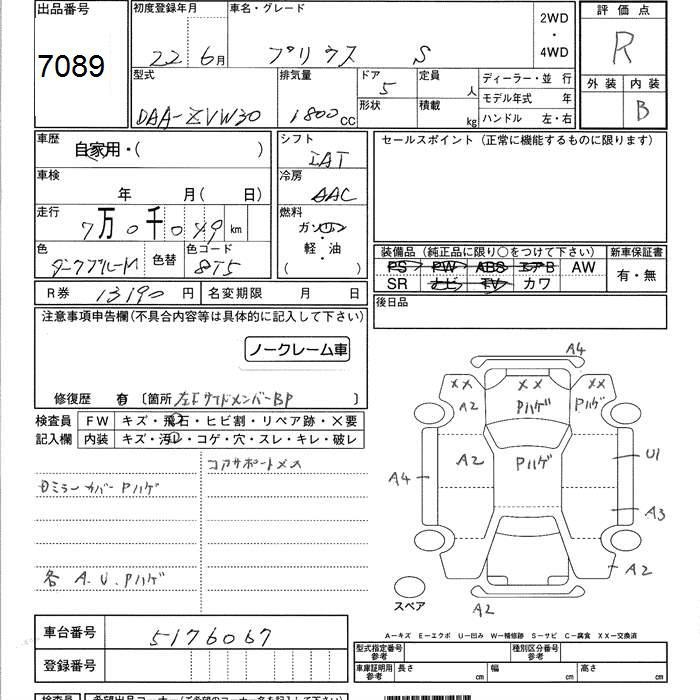 出品番号
7089
初度登録年月
22 6月
車名・グレード
プリウス S
2WD
・
4WD
評価点
R
外装 内装
B
型式
DAA-ZVW30
排気量
1800cc
ドア
5
形状
定員
人
積載
kg
ディーラー・並行
モデル年式 年
ハンドル 左・右
車歴
自家用・( )
シフト
IAT
セールスポイント (正常に機能するものに限ります)
車検
年 月(日)
冷房
AAC
走行
7万0千049km
燃料
ガソリン
・
軽・油
( )
色
ダークブルーM
色替
色コード
8T5
装備品 (純正品に限り○をつけて下さい)
PS PW ABS エアB AW
SR ナビ TV カワ
新車保証書
有・無
R券 13190円
名変期限 月 日
後日品
注意事項申告欄(不具合内容等は具体的に記入して下さい)
ノークレーム車
修復歴 有 〔箇所 左Fサイドメンバー BP 〕
検査員
記入欄
FW キズ・飛石・ヒビ割・リペア跡・×要
内装 キズ・汚レ・コゲ・穴・スレ・キレ・破レ
コアサポートメス
ミラーカバーPハゲ
各 A.U.Pハゲ
A4
XX
XX
XX
A2
Pハゲ
Pハゲ
A2
Pハゲ
U1
A4
A3
A2
A2
スペア
A-キズ E-エクボ U-凹み W-補修跡 S-サビ C-腐食 XX-交換済
車台番号
5176067
登録番号
型式指定番号
参考
種別区分番号
参考
車庫証明用
参考
長さ cm
幅 cm
高さ cm
検査員
希望出品コーナー(ご希望のコーナー名を記入して下さい)